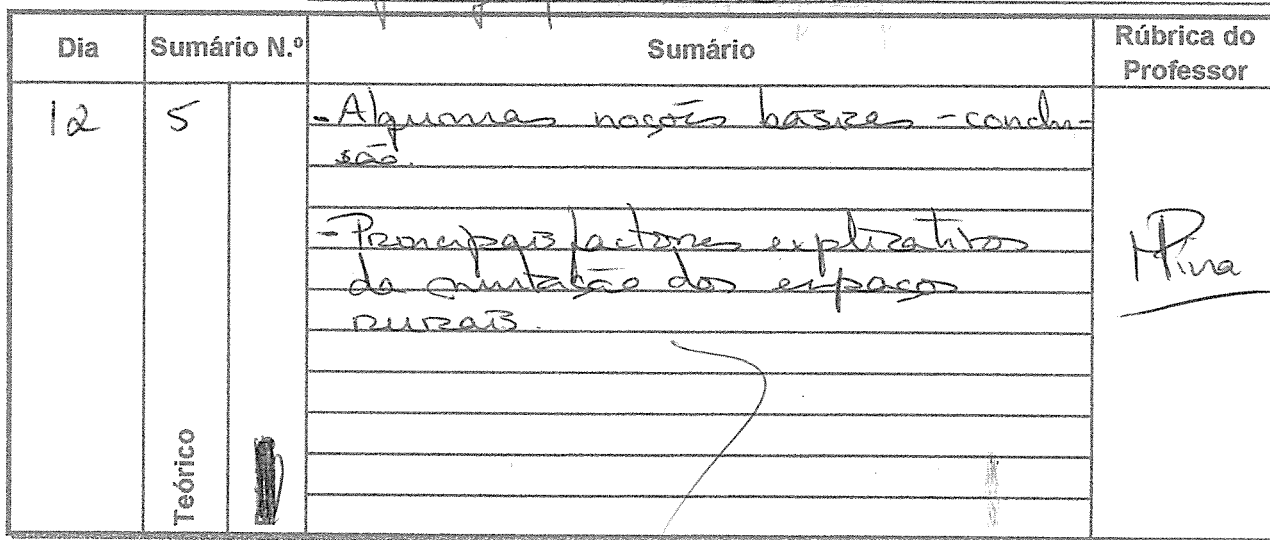 Dia Sumário N.º Sumário Rúbrica do Professor
12 5 - Algumas noções básicas - conclu-
são.
- Principais factores explicativos
da mutação dos espaços
rurais.
Pina
Teórico